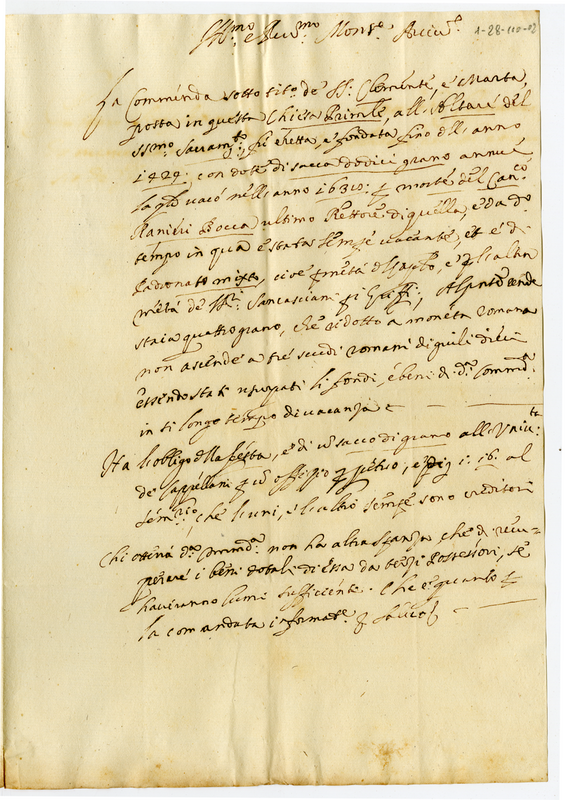 Ill:mo e Rev:mo Mons:e Arciv:o
1-28-110-02
La Commenda sotto tit:o de SS: Clemente, e Marta,
posta in questa Chiesa Primle, all'Altare del
SSmo: Sacram:to, che eretta, e fondata sino dell'anno
1429: con dote di sacca dodici grano annue
la pto vacò nell'anno 1630: p morte del Canco
Ranieri Bocca ultimo Rettore di quella, e da do
tempo in qua è stata sempre vacante, et è di
Padronato misto, cioè p metà
metà de SS:ri Sancasciani
staia quattro grano, che ridotto a moneta romana
non ascende a tre scudi romani di giuli dieci
essendo stati usurpati li fondi, e beni di da: Commda:
in sì longo tempo di vacanza e
Ha l'obligo della festa, e di un sacco di grano all'Univ:tà
de Cappellani p un offizio p
che l'uni, e l'altro sempre sono creditori
Chi otterrà da: commda: non ha altra speranza che di recu-
perare i beni dotali di essa da terzi Possessori, se
haveranno lumi sufficienti. Che è quanto p
la comandata informate: